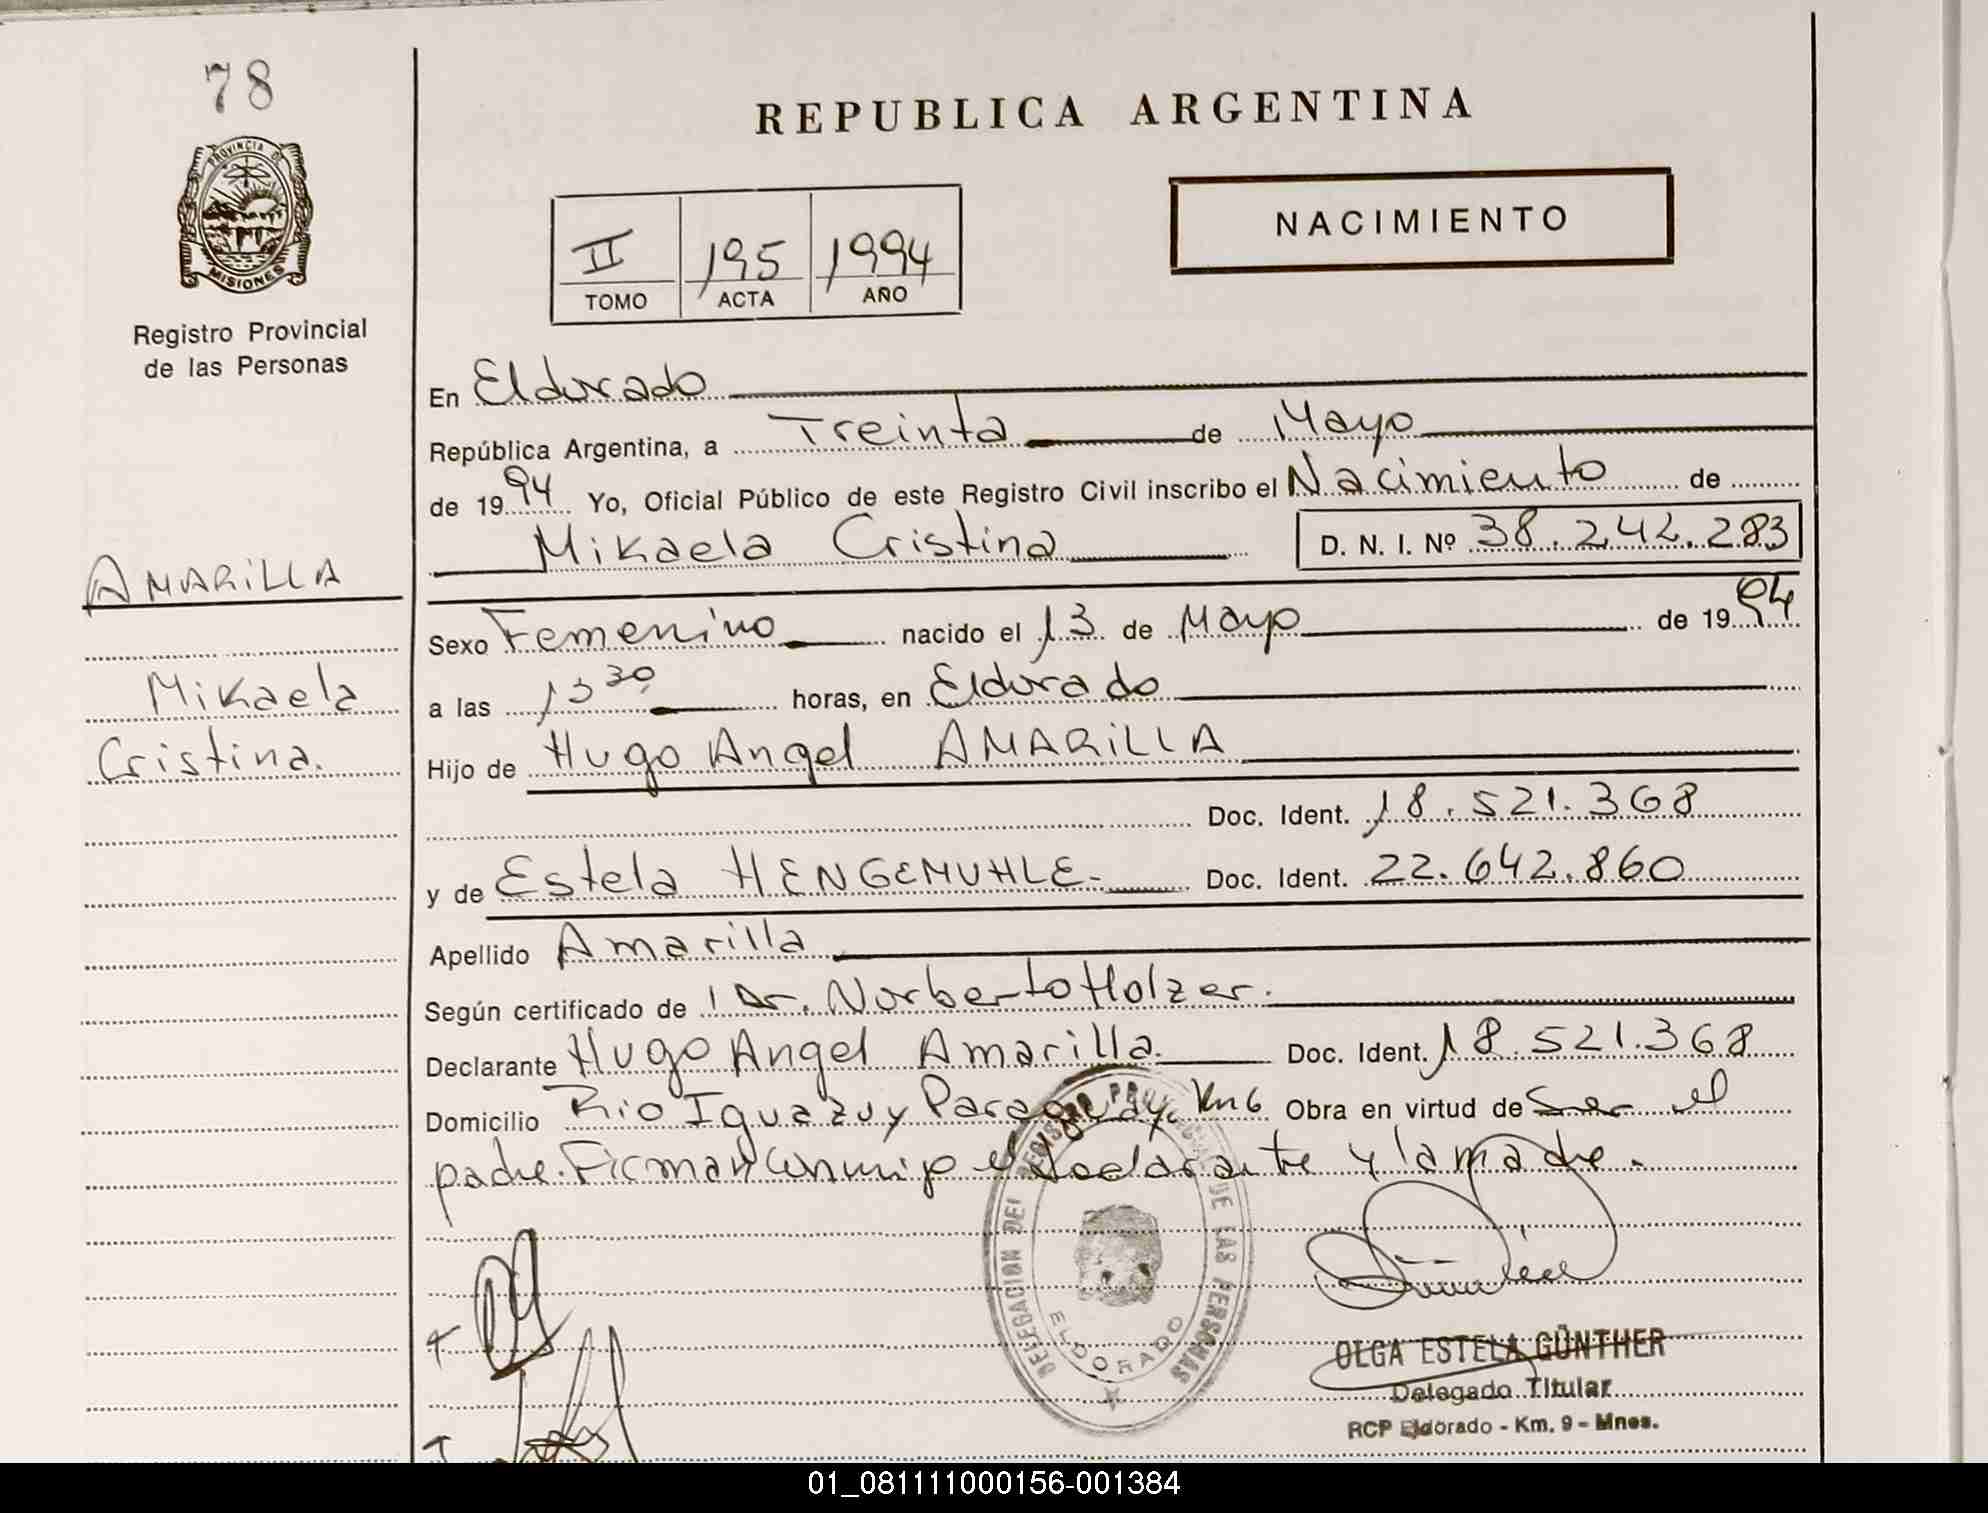 78
PROVINCIA DE
MISIONES
Registro Provincial
de las Personas
REPUBLICA ARGENTINA
NACIMIENTO
II 195 1994
TOMO ACTA AÑO
En Eldorado
República Argentina, a Treinta de Mayo
de 1994 Yo, Oficial Público de este Registro Civil inscribo el Nacimiento de
Mikaela Cristina D. N. I. Nº 38.242.283
AMARILLA
Mikaela
Cristina.
Sexo Femenino nacido el 13 de Mayo de 1994
a las 13 30 horas, en Eldorado
Hijo de Hugo Angel AMARILLA
Doc. Ident. 18.521.368
y de Estela HENGEMUHLE.- Doc. Ident. 22.642.860
Apellido Amarilla
Según certificado de Dr. Norberto Holzer.
Declarante Hugo Angel Amarilla. Doc. Ident. 18.521.368
Domicilio Rio Iguazu y Paraguay. Km 6 Obra en virtud de Ser el
padre. Firman conmigo el declarante y la madre.
DELEGACION DEL REGISTRO PROVINCIAL DE LAS PERSONAS
ELDORADO
OLGA ESTELA GÜNTHER
Delegado Titular
RCP Eldorado - Km. 9 - Mnes.
01_081111000156-001384